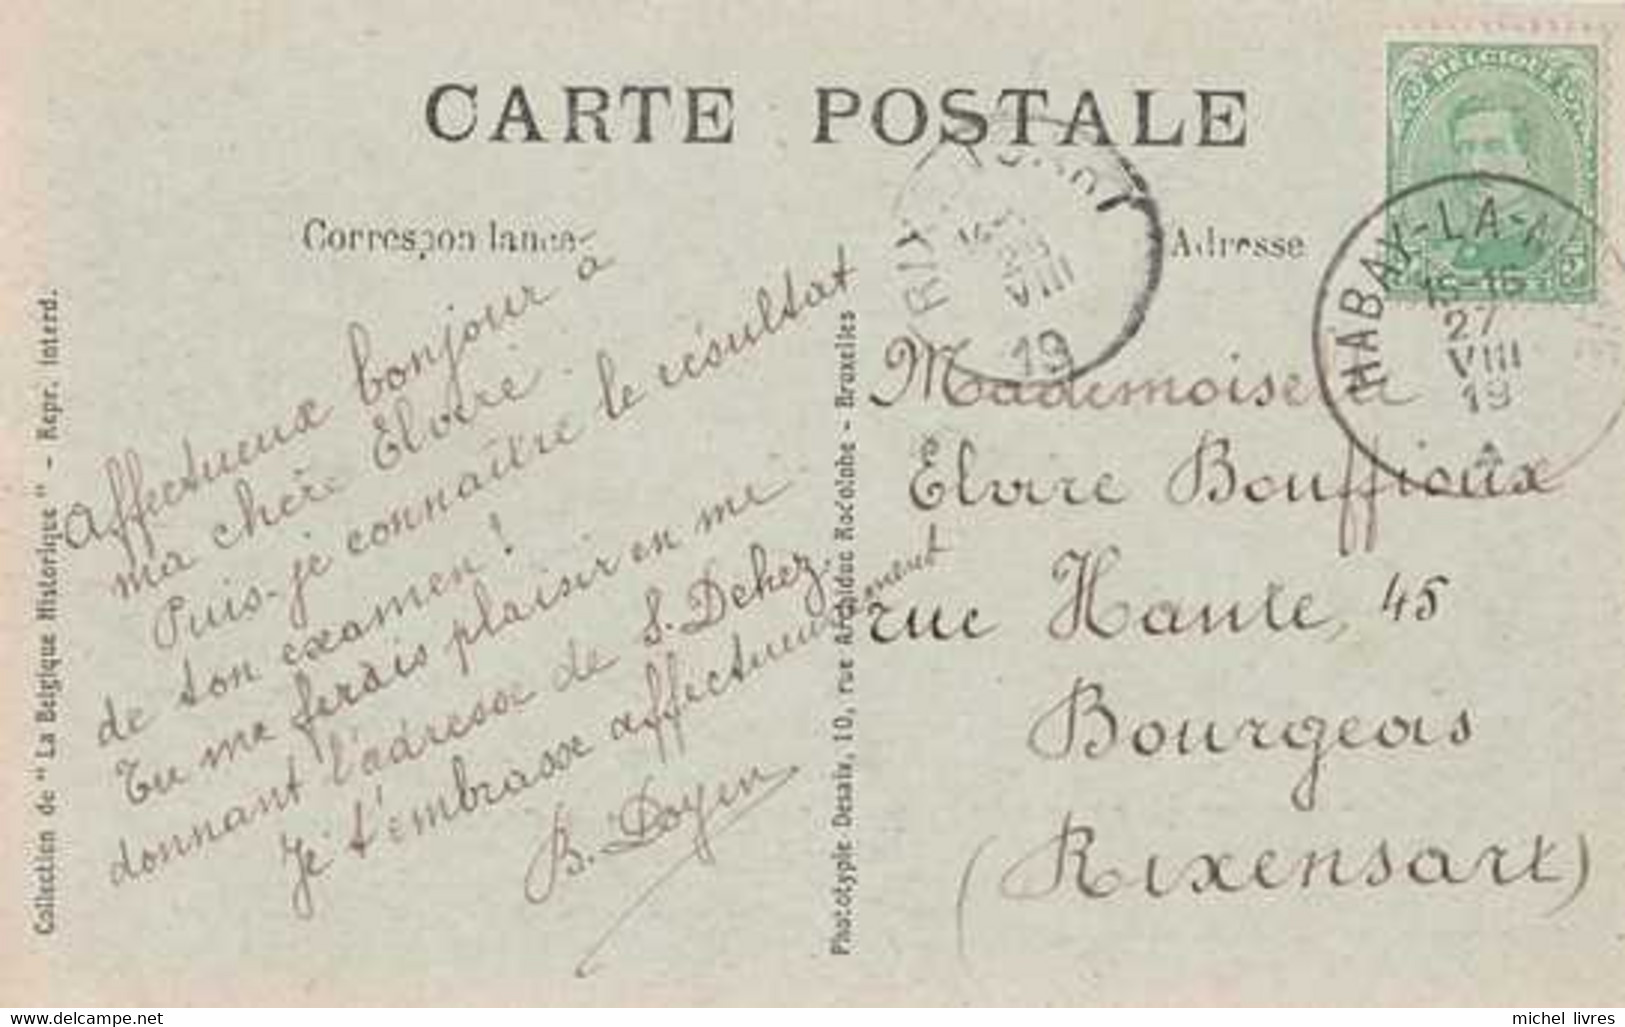 CARTE POSTALE
Correspondance
Adresse
Affectueux bonjour à
ma chère Elvire.
Puis-je connaître le résultat
de ton examen!
Tu me ferais plaisir en me
donnant l'adresse de S. Dehez.
Je t'embrasse affectueusement
B. Doyen
Mademoiselle
Elvire Bouffioux
rue Haute, 45
Bourgeois
(Rixensart)
Collection de "La Belgique Historique" - Repr. interd.
Phototypie Desaix, 10, rue Archiduc Rodolphe - Bruxelles
BELGIQUE
5
HABAY-LA-N
15-16
27
VIII
19
RIX
VIII
19
delcampe.net
michel_livres